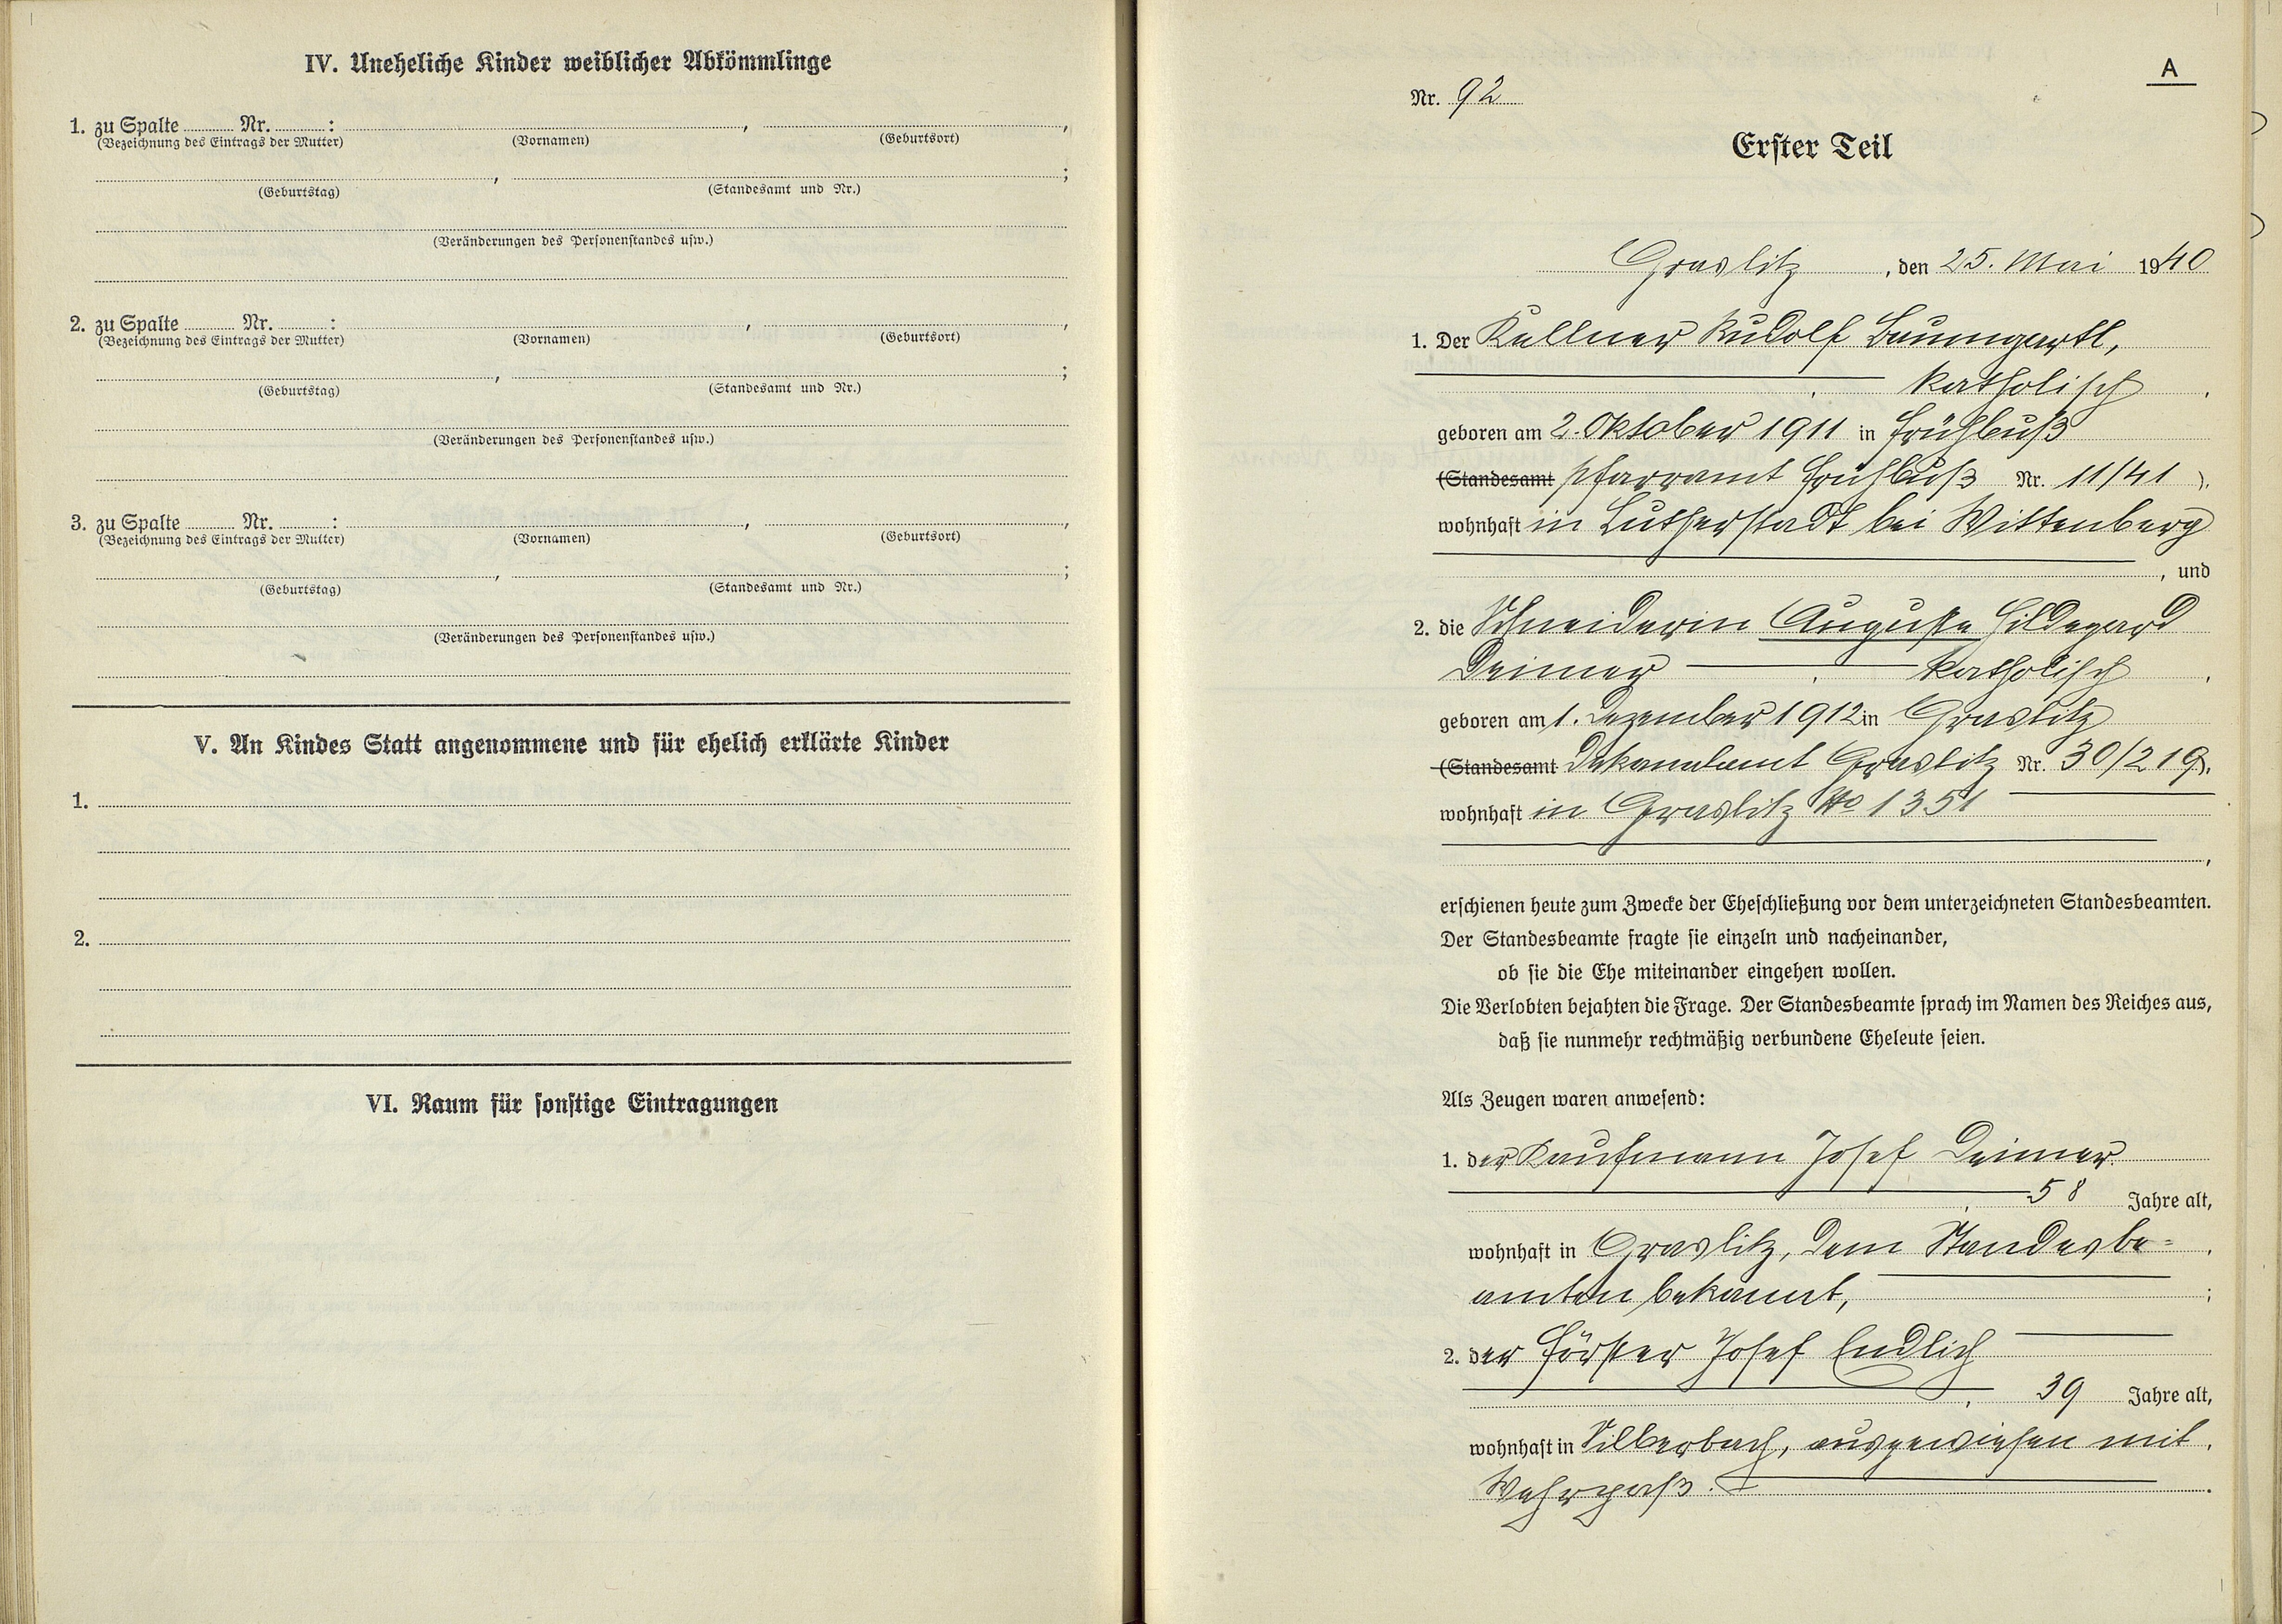 IV. Uneheliche Kinder weiblicher Abkömmlinge
1. zu Spalte ........ Nr. ........ : ........ , ........ ,
(Bezeichnung des Eintrags der Mutter) (Vornamen) (Geburtsort)
........ , ........ ;
(Geburtstag) (Standesamt und Nr.)
(Veränderungen des Personenstandes usw.)
2. zu Spalte ........ Nr. ........ : ........ , ........ ,
(Bezeichnung des Eintrags der Mutter) (Vornamen) (Geburtsort)
........ , ........ ;
(Geburtstag) (Standesamt und Nr.)
(Veränderungen des Personenstandes usw.)
3. zu Spalte ........ Nr. ........ : ........ , ........ ,
(Bezeichnung des Eintrags der Mutter) (Vornamen) (Geburtsort)
........ , ........ ;
(Geburtstag) (Standesamt und Nr.)
(Veränderungen des Personenstandes usw.)
V. An Kindes Statt angenommene und für ehelich erklärte Kinder
1.
2.
VI. Raum für sonstige Eintragungen
A
Nr. 92
Erster Teil
Graslitz, den 25. Mai 1940
1. Der Kellner Rudolf Baumgartl,
katholisch,
geboren am 2. Oktober 1911 in Frühbuß
(Standesamt Pfarramt Frühbuß Nr. 11/41),
wohnhaft in Lutherstadt bei Wittenberg
, und
2. die Schneiderin Auguste Hildegard
Deimer katholisch,
geboren am 1. Dezember 1912 in Graslitz
(Standesamt Dekanalamt Graslitz Nr. 30/219),
wohnhaft in Graslitz No 1351
,
erschienen heute zum Zwecke der Eheschließung vor dem unterzeichneten Standesbeamten.
Der Standesbeamte fragte sie einzeln und nacheinander,
ob sie die Ehe miteinander eingehen wollen.
Die Verlobten bejahten die Frage. Der Standesbeamte sprach im Namen des Reiches aus,
daß sie nunmehr rechtmäßig verbundene Eheleute seien.
Als Zeugen waren anwesend:
1. der Kaufmann Josef Deimer
, 58 Jahre alt,
wohnhaft in Graslitz, dem Standesbe=
amten bekannt, ;
2. der Förster Josef Endlich
, 39 Jahre alt,
wohnhaft in Silberbach, ausgewiesen mit
Wehrpaß.